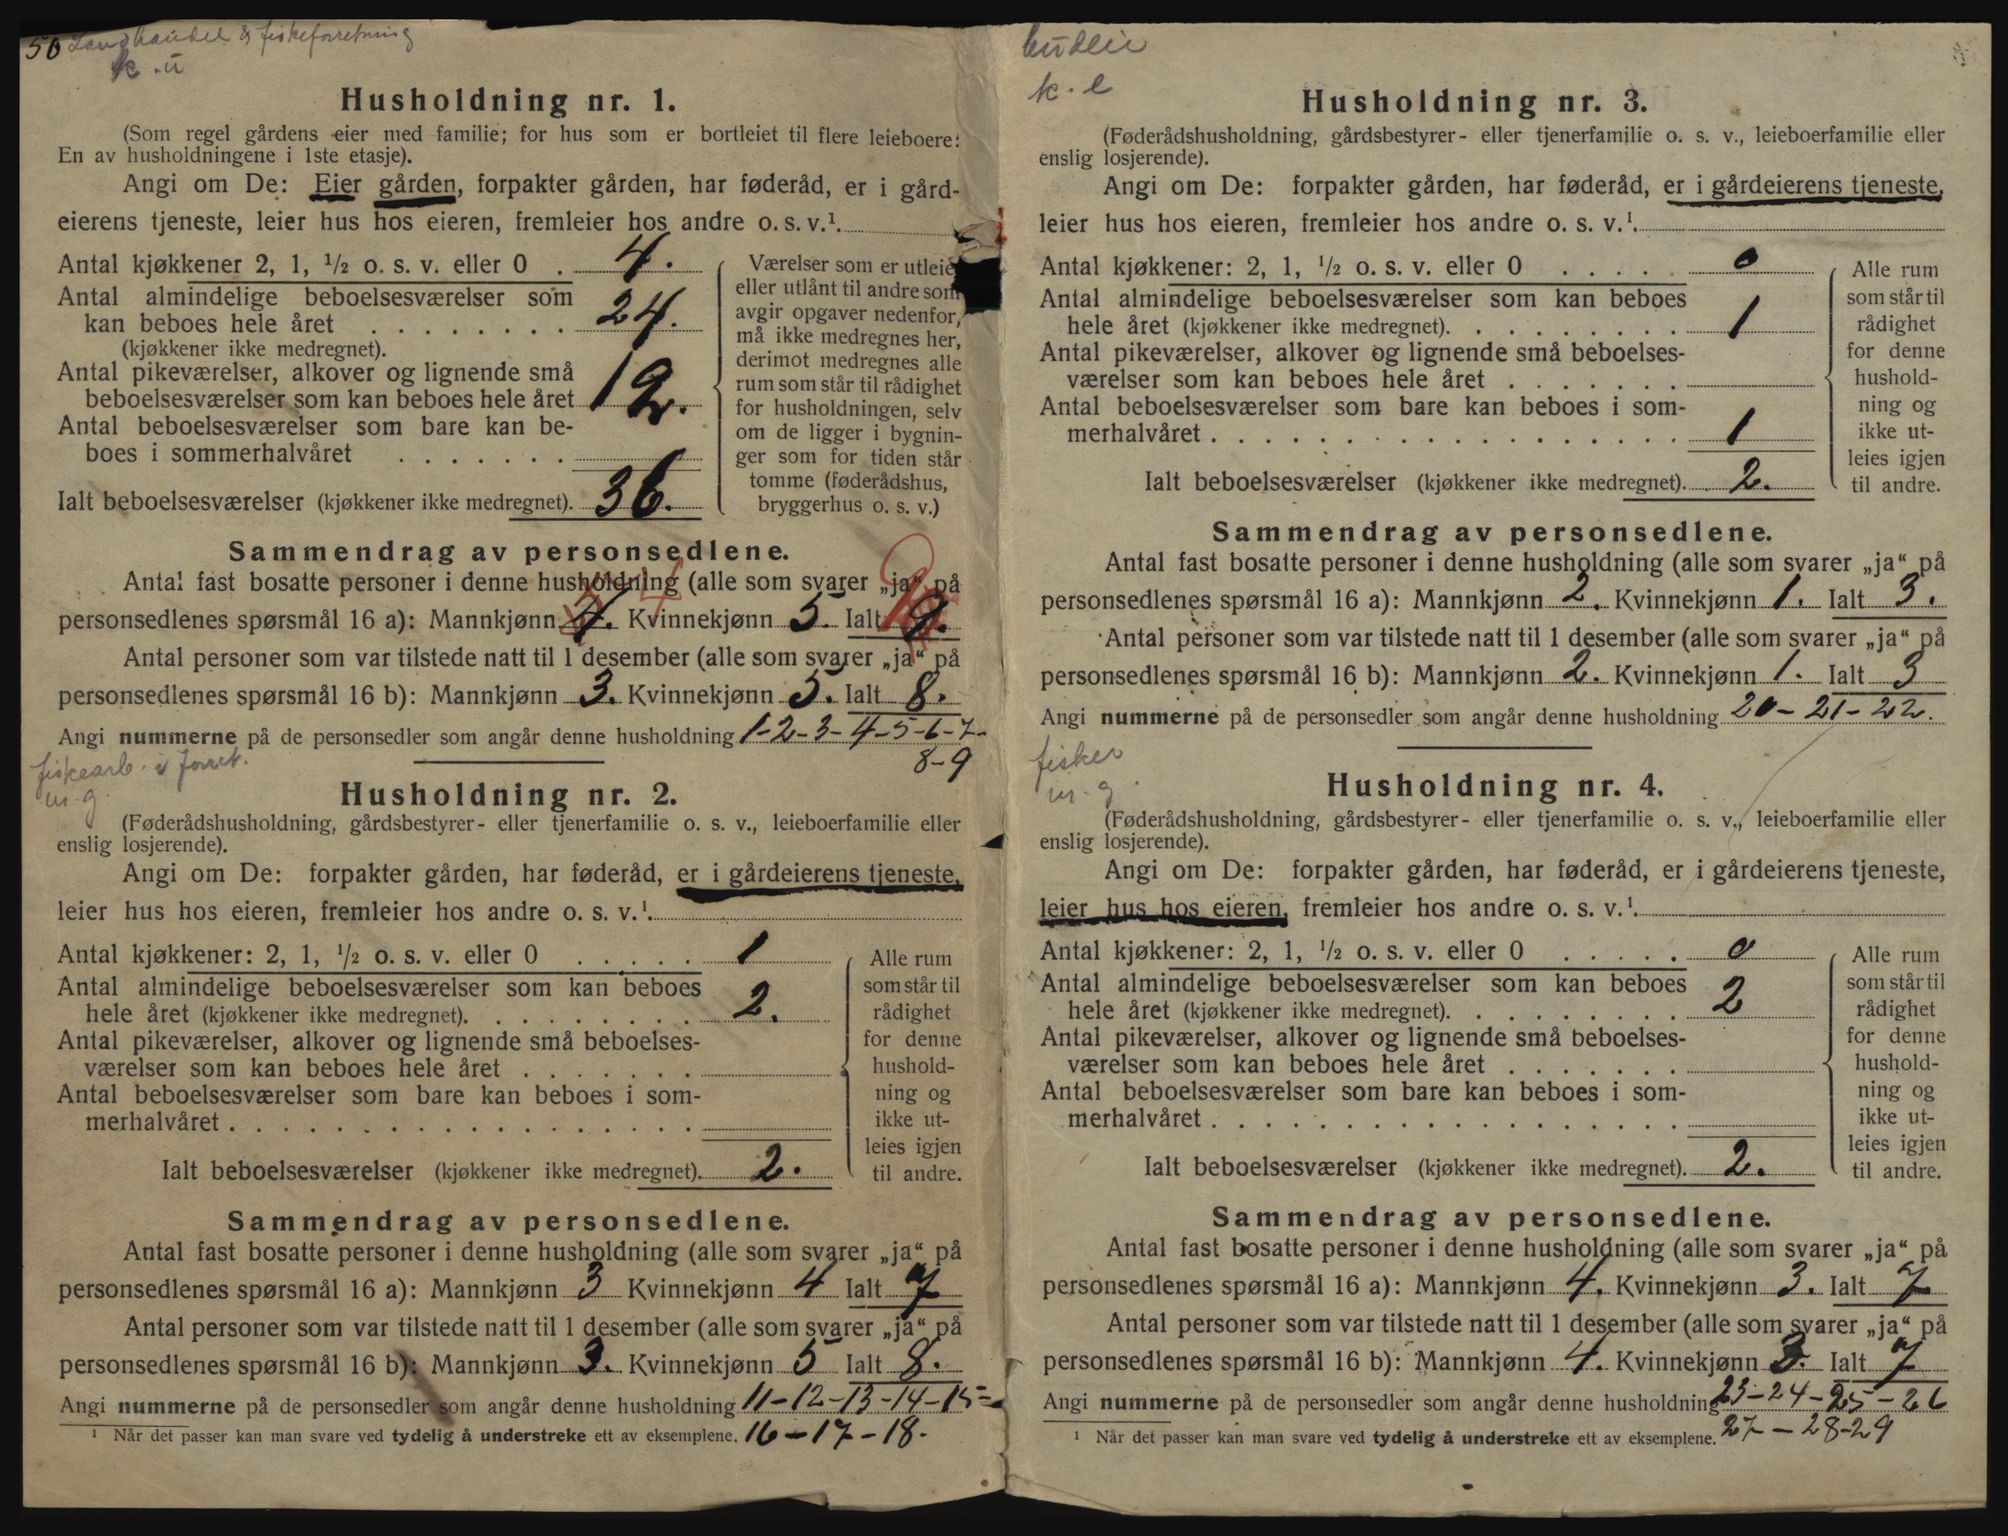 50 Landhandel & fiskeforretning
k.u
Husholdning nr. 1.
(Som regel gårdens eier med familie; for hus som er bortleiet til flere leieboere:
En av husholdningene i 1ste etasje).
Angi om De: Eier gården, forpakter gården, har føderåd, er i gård-
eierens tjeneste, leier hus hos eieren, fremleier hos andre o. s. v.¹.
Antal kjøkkener 2, 1, ½ o. s. v. eller 0 . 4.
Antal almindelige beboelsesværelser som
kan beboes hele året . . . . . . . . 24.
(kjøkkener ikke medregnet).
Antal pikeværelser, alkover og lignende små
beboelsesværelser som kan beboes hele året 12.
Antal beboelsesværelser som bare kan be-
boes i sommerhalvåret . . . . . . .
Ialt beboelsesværelser (kjøkkener ikke medregnet). 36.
Værelser som er utleiet
eller utlånt til andre som
avgir opgaver nedenfor,
må ikke medregnes her,
derimot medregnes alle
rum som står til rådighet
for husholdningen, selv
om de ligger i bygnin-
ger som for tiden står
tomme (føderådshus,
bryggerhus o. s. v.)
Sammendrag av personsedlene.
Antal fast bosatte personer i denne husholdning (alle som svarer „ja“ på
personsedlenes spørsmål 16 a): Mannkjønn 4. Kvinnekjønn 5. Ialt 9.
Antal personer som var tilstede natt til 1 desember (alle som svarer „ja“ på
personsedlenes spørsmål 16 b): Mannkjønn 3. Kvinnekjønn 5. Ialt 8.
Angi nummerne på de personsedler som angår denne husholdning 1-2-3-4-5-6-7-
8-9
fiskearb. i forret.
m.g.
Husholdning nr. 2.
(Føderådshusholdning, gårdsbestyrer- eller tjenerfamilie o. s. v., leieboerfamilie eller
enslig losjerende).
Angi om De: forpakter gården, har føderåd, er i gårdeierens tjeneste,
leier hus hos eieren, fremleier hos andre o. s. v.¹.
Antal kjøkkener: 2, 1, ½ o. s. v. eller 0 . . . . . 1
Antal almindelige beboelsesværelser som kan beboes
hele året (kjøkkener ikke medregnet). . . . . . . . . 2.
Antal pikeværelser, alkover og lignende små beboelses-
værelser som kan beboes hele året . . . . . . .
Antal beboelsesværelser som bare kan beboes i som-
merhalvåret . . . . . . . . . . . . . . . . . .
Ialt beboelsesværelser (kjøkkener ikke medregnet). 2.
Alle rum
som står til
rådighet
for denne
hushold-
ning og
ikke ut-
leies igjen
til andre.
Sammendrag av personsedlene.
Antal fast bosatte personer i denne husholdning (alle som svarer „ja“ på
personsedlenes spørsmål 16 a): Mannkjønn 3 Kvinnekjønn 4 Ialt 7
Antal personer som var tilstede natt til 1 desember (alle som svarer „ja“ på
personsedlenes spørsmål 16 b): Mannkjønn 3. Kvinnekjønn 5 Ialt 8.
Angi nummerne på de personsedler som angår denne husholdning 11-12-13-14-15-
¹ Når det passer kan man svare ved tydelig å understreke ett av eksemplene. 16-17-18.
k. l
Husholdning nr. 3.
(Føderådshusholdning, gårdsbestyrer- eller tjenerfamilie o. s. v., leieboerfamilie eller
enslig losjerende).
Angi om De: forpakter gården, har føderåd, er i gårdeierens tjeneste,
leier hus hos eieren, fremleier hos andre o. s. v.¹.
Antal kjøkkener: 2, 1, ½ o. s. v. eller 0 . . . . . 0
Antal almindelige beboelsesværelser som kan beboes
hele året (kjøkkener ikke medregnet). . . . . . . . . 1
Antal pikeværelser, alkover og lignende små beboelses-
værelser som kan beboes hele året . . . . . . .
Antal beboelsesværelser som bare kan beboes i som-
merhalvåret . . . . . . . . . . . . . . . . . . 1
Ialt beboelsesværelser (kjøkkener ikke medregnet). 2.
Alle rum
som står til
rådighet
for denne
hushold-
ning og
ikke ut-
leies igjen
til andre.
Sammendrag av personsedlene.
Antal fast bosatte personer i denne husholdning (alle som svarer „ja“ på
personsedlenes spørsmål 16 a): Mannkjønn 2. Kvinnekjønn 1. Ialt 3.
Antal personer som var tilstede natt til 1 desember (alle som svarer „ja“ på
personsedlenes spørsmål 16 b): Mannkjønn 2. Kvinnekjønn 1. Ialt 3
Angi nummerne på de personsedler som angår denne husholdning 20-21-22.
fisker
m.g.
Husholdning nr. 4.
(Føderådshusholdning, gårdsbestyrer- eller tjenerfamilie o. s. v., leieboerfamilie eller
enslig losjerende).
Angi om De: forpakter gården, har føderåd, er i gårdeierens tjeneste,
leier hus hos eieren, fremleier hos andre o. s. v.¹.
Antal kjøkkener: 2, 1, ½ o. s. v. eller 0 . . . . . 0
Antal almindelige beboelsesværelser som kan beboes
hele året (kjøkkener ikke medregnet). . . . . . . . . 2
Antal pikeværelser, alkover og lignende små beboelses-
værelser som kan beboes hele året . . . . . . .
Antal beboelsesværelser som bare kan beboes i som-
merhalvåret . . . . . . . . . . . . . . . . . .
Ialt beboelsesværelser (kjøkkener ikke medregnet). 2.
Alle rum
som står til
rådighet
for denne
hushold-
ning og
ikke ut-
leies igjen
til andre.
Sammendrag av personsedlene.
Antal fast bosatte personer i denne husholdning (alle som svarer „ja“ på
personsedlenes spørsmål 16 a): Mannkjønn 4. Kvinnekjønn 3. Ialt 7
Antal personer som var tilstede natt til 1 desember (alle som svarer „ja“ på
personsedlenes spørsmål 16 b): Mannkjønn 4. Kvinnekjønn 3. Ialt 7
Angi nummerne på de personsedler som angår denne husholdning 23-24-25-26
¹ Når det passer kan man svare ved tydelig å understreke ett av eksemplene. 27-28-29